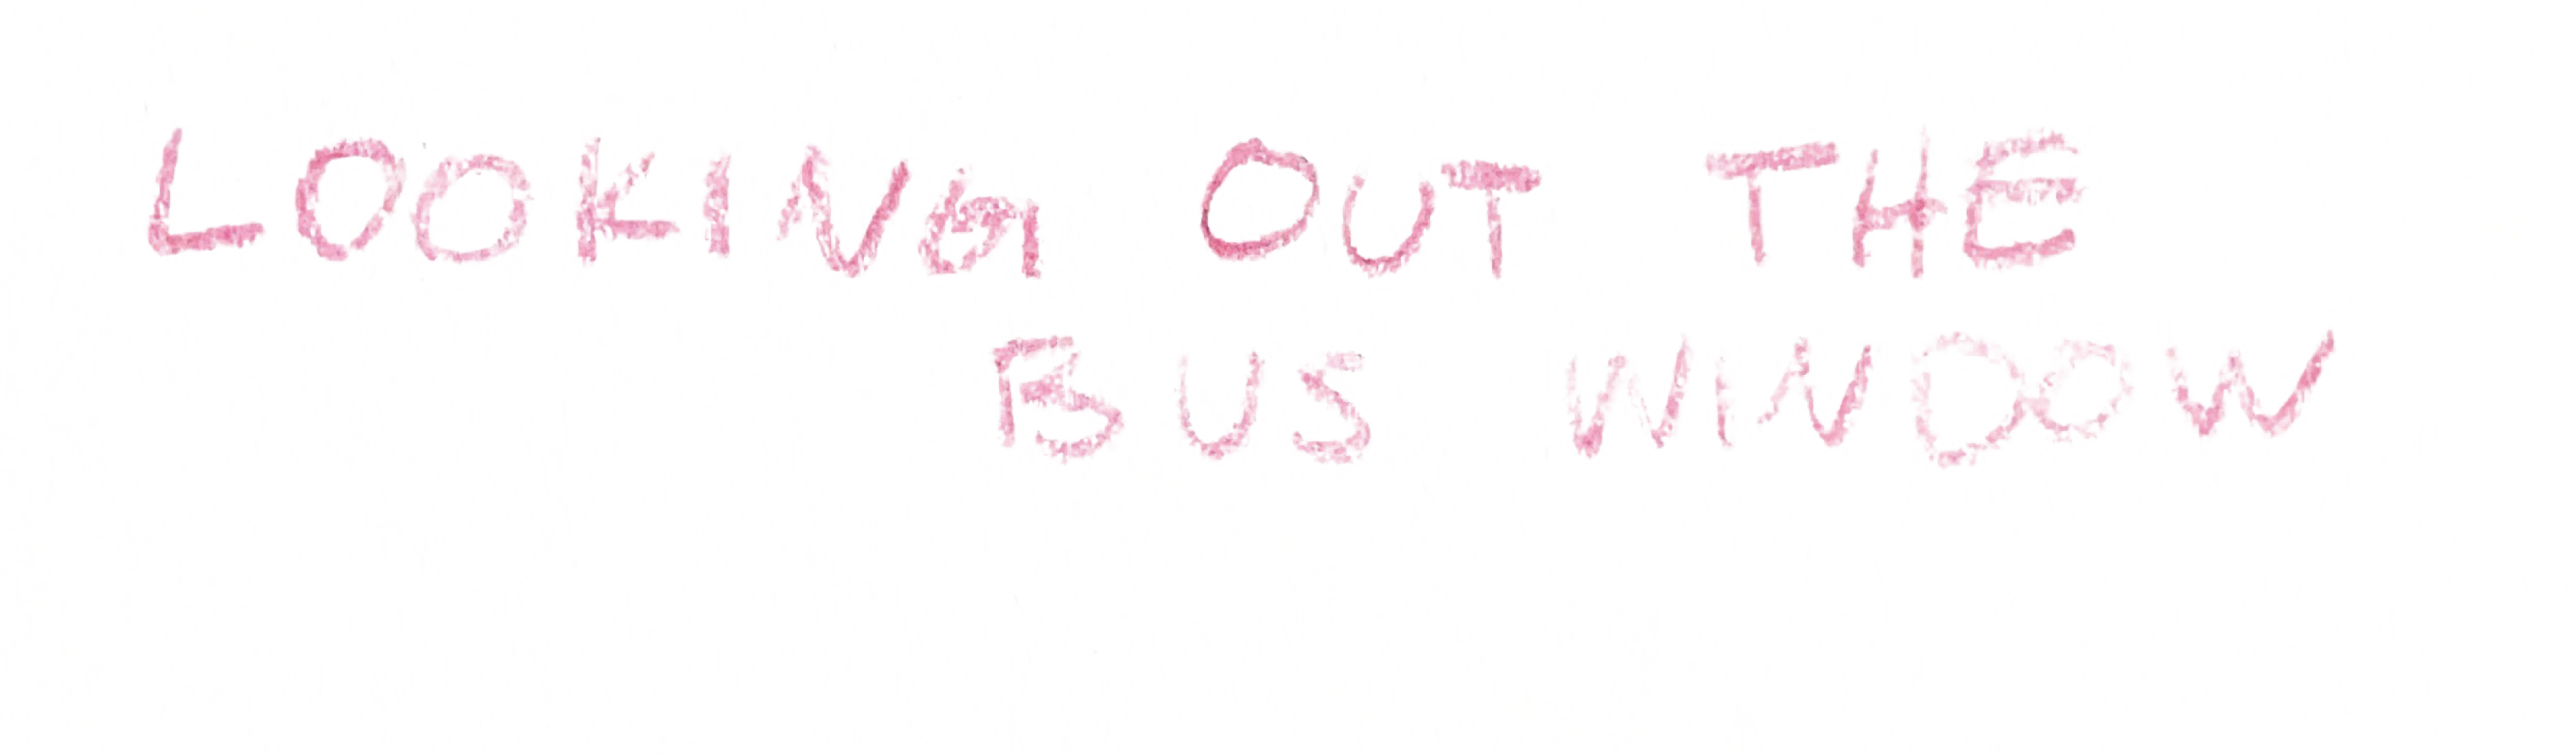 LOOKING OUT THE
BUS WINDOW